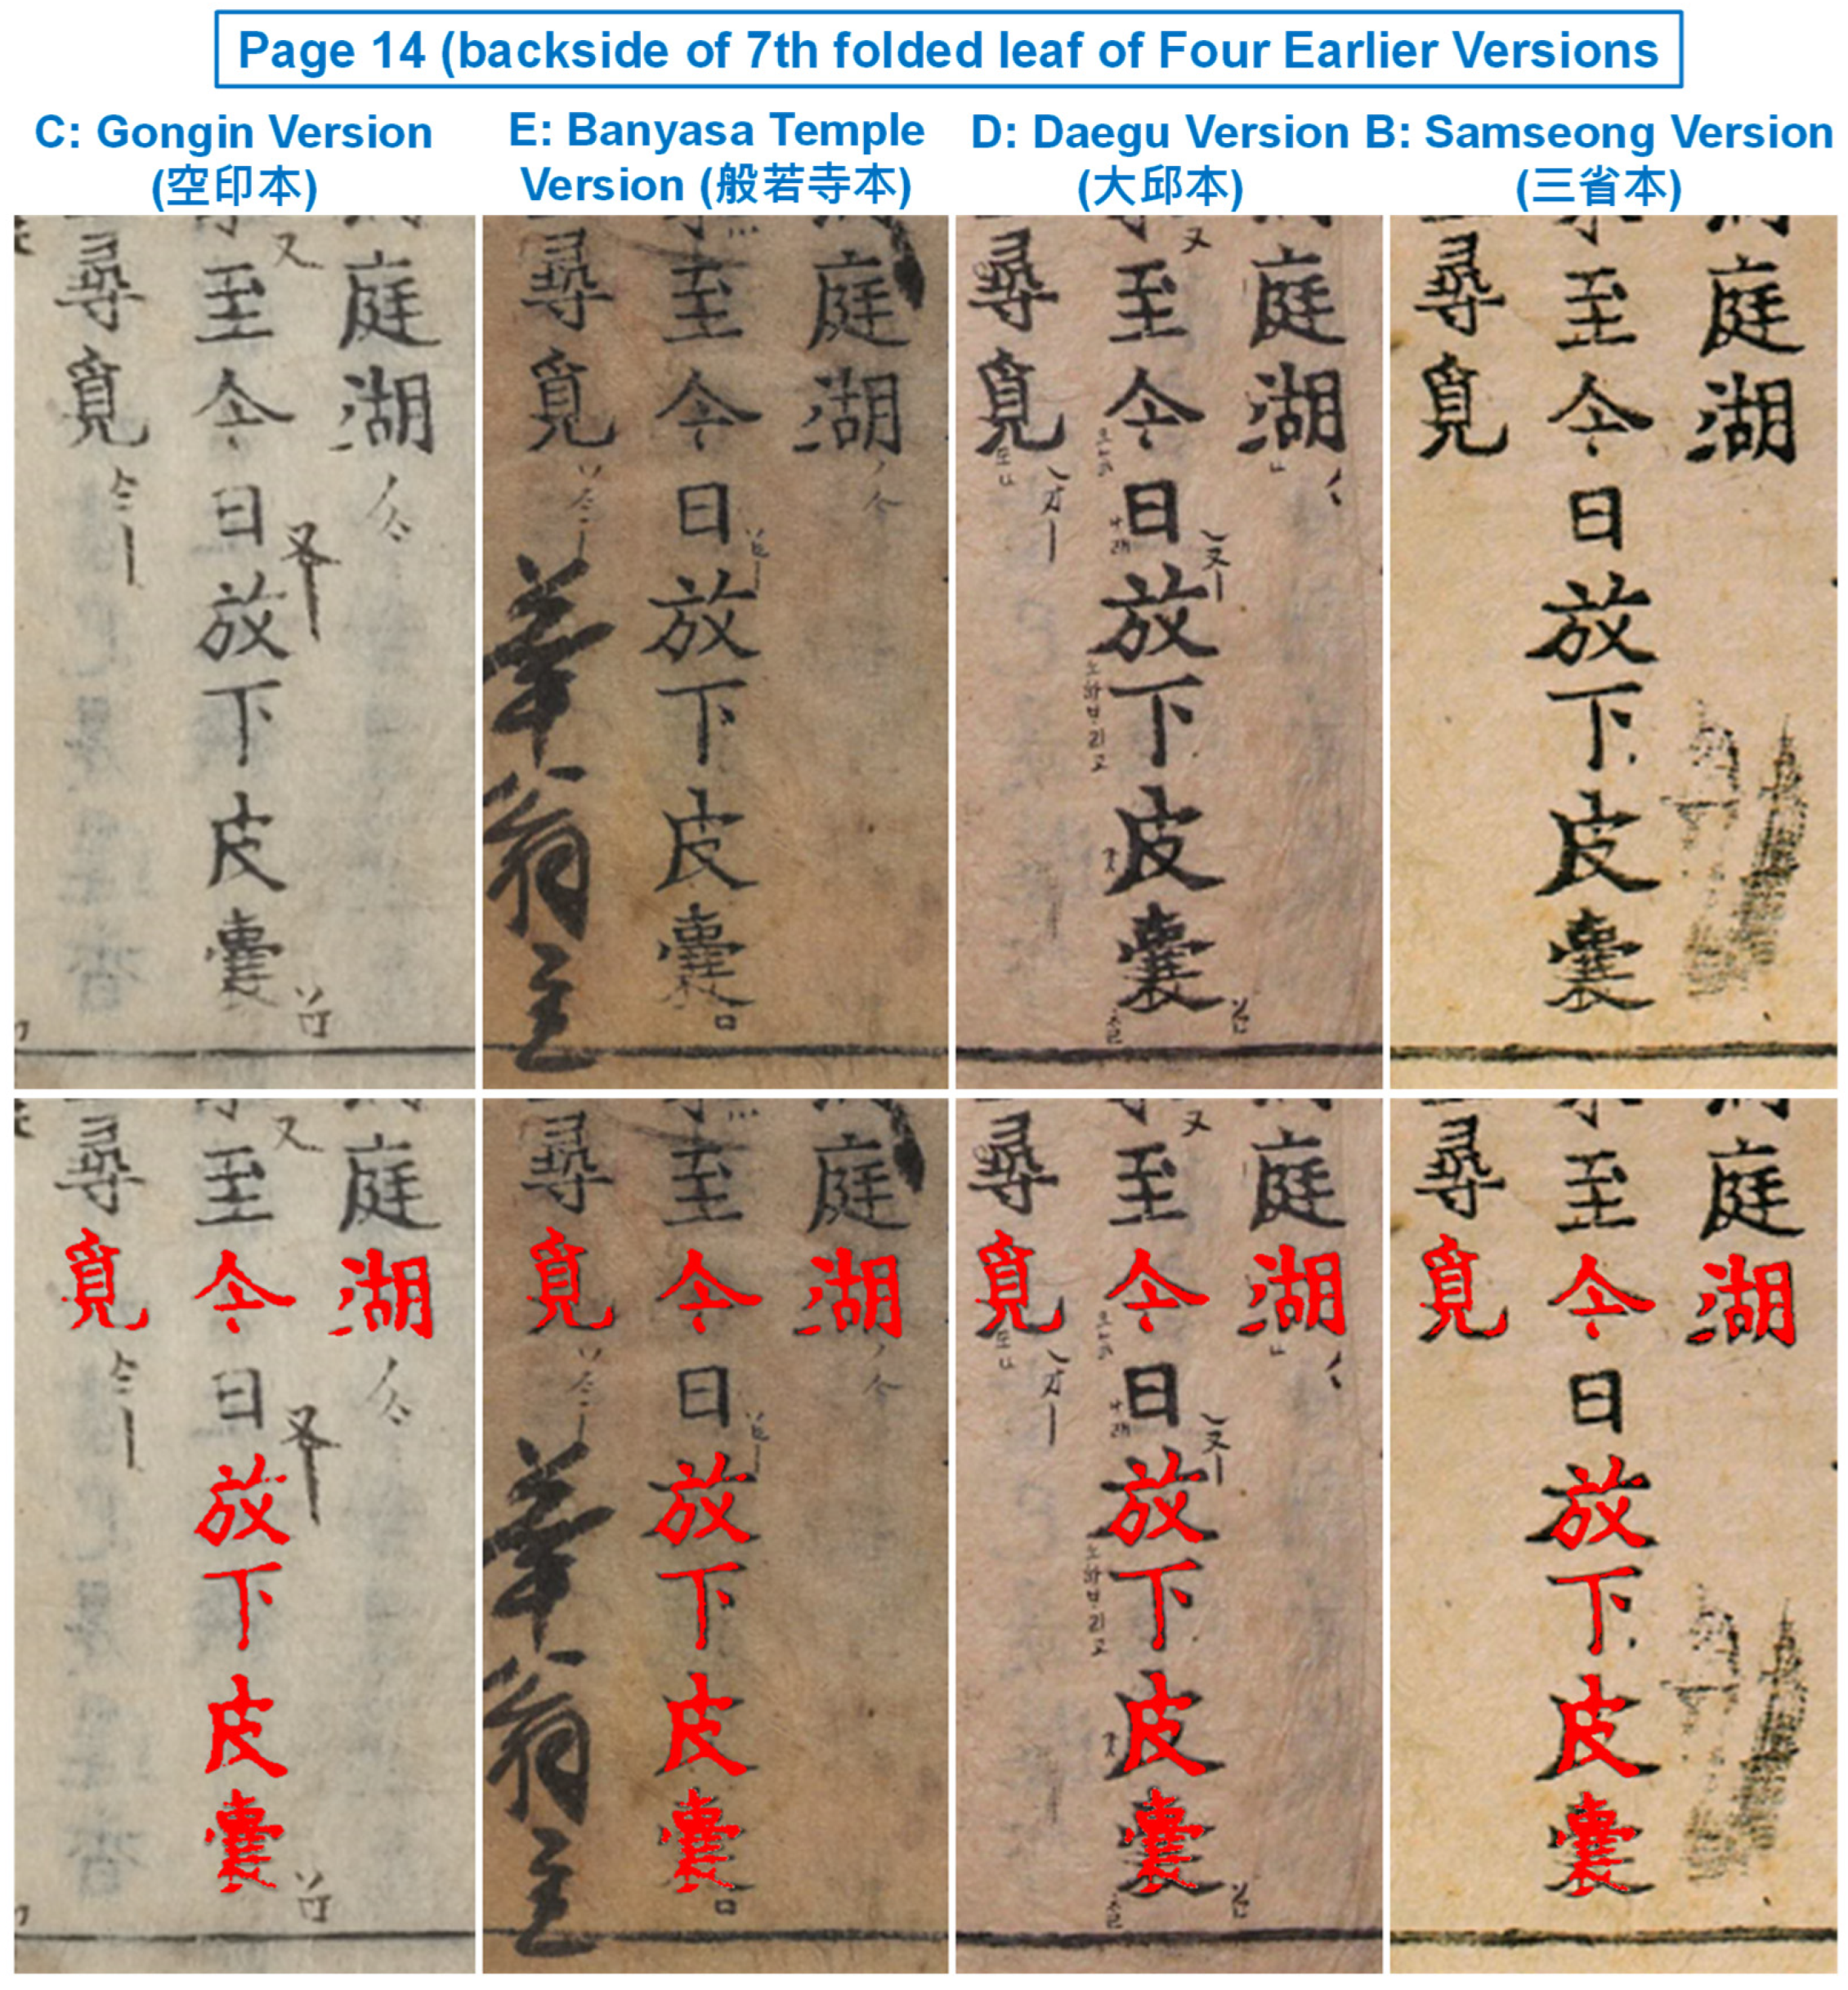 Page 14 (backside of 7th folded leaf of Four Earlier Versions
C: Gongin Version
(空印本)
E: Banyasa Temple
Version (般若寺本)
D: Daegu Version
(大邱本)
B: Samseong Version
(三省本)
庭湖
至今日放下皮囊
尋覓
庭湖
至今日放下皮囊
尋覓
華翁主
庭湖
至今日放下皮囊
尋覓
庭湖
至今日放下皮囊
尋覓
庭湖
至今日放下皮囊
尋覓
庭湖
至今日放下皮囊
尋覓
華翁主
庭湖
至今日放下皮囊
尋覓
庭湖
至今日放下皮囊
尋覓